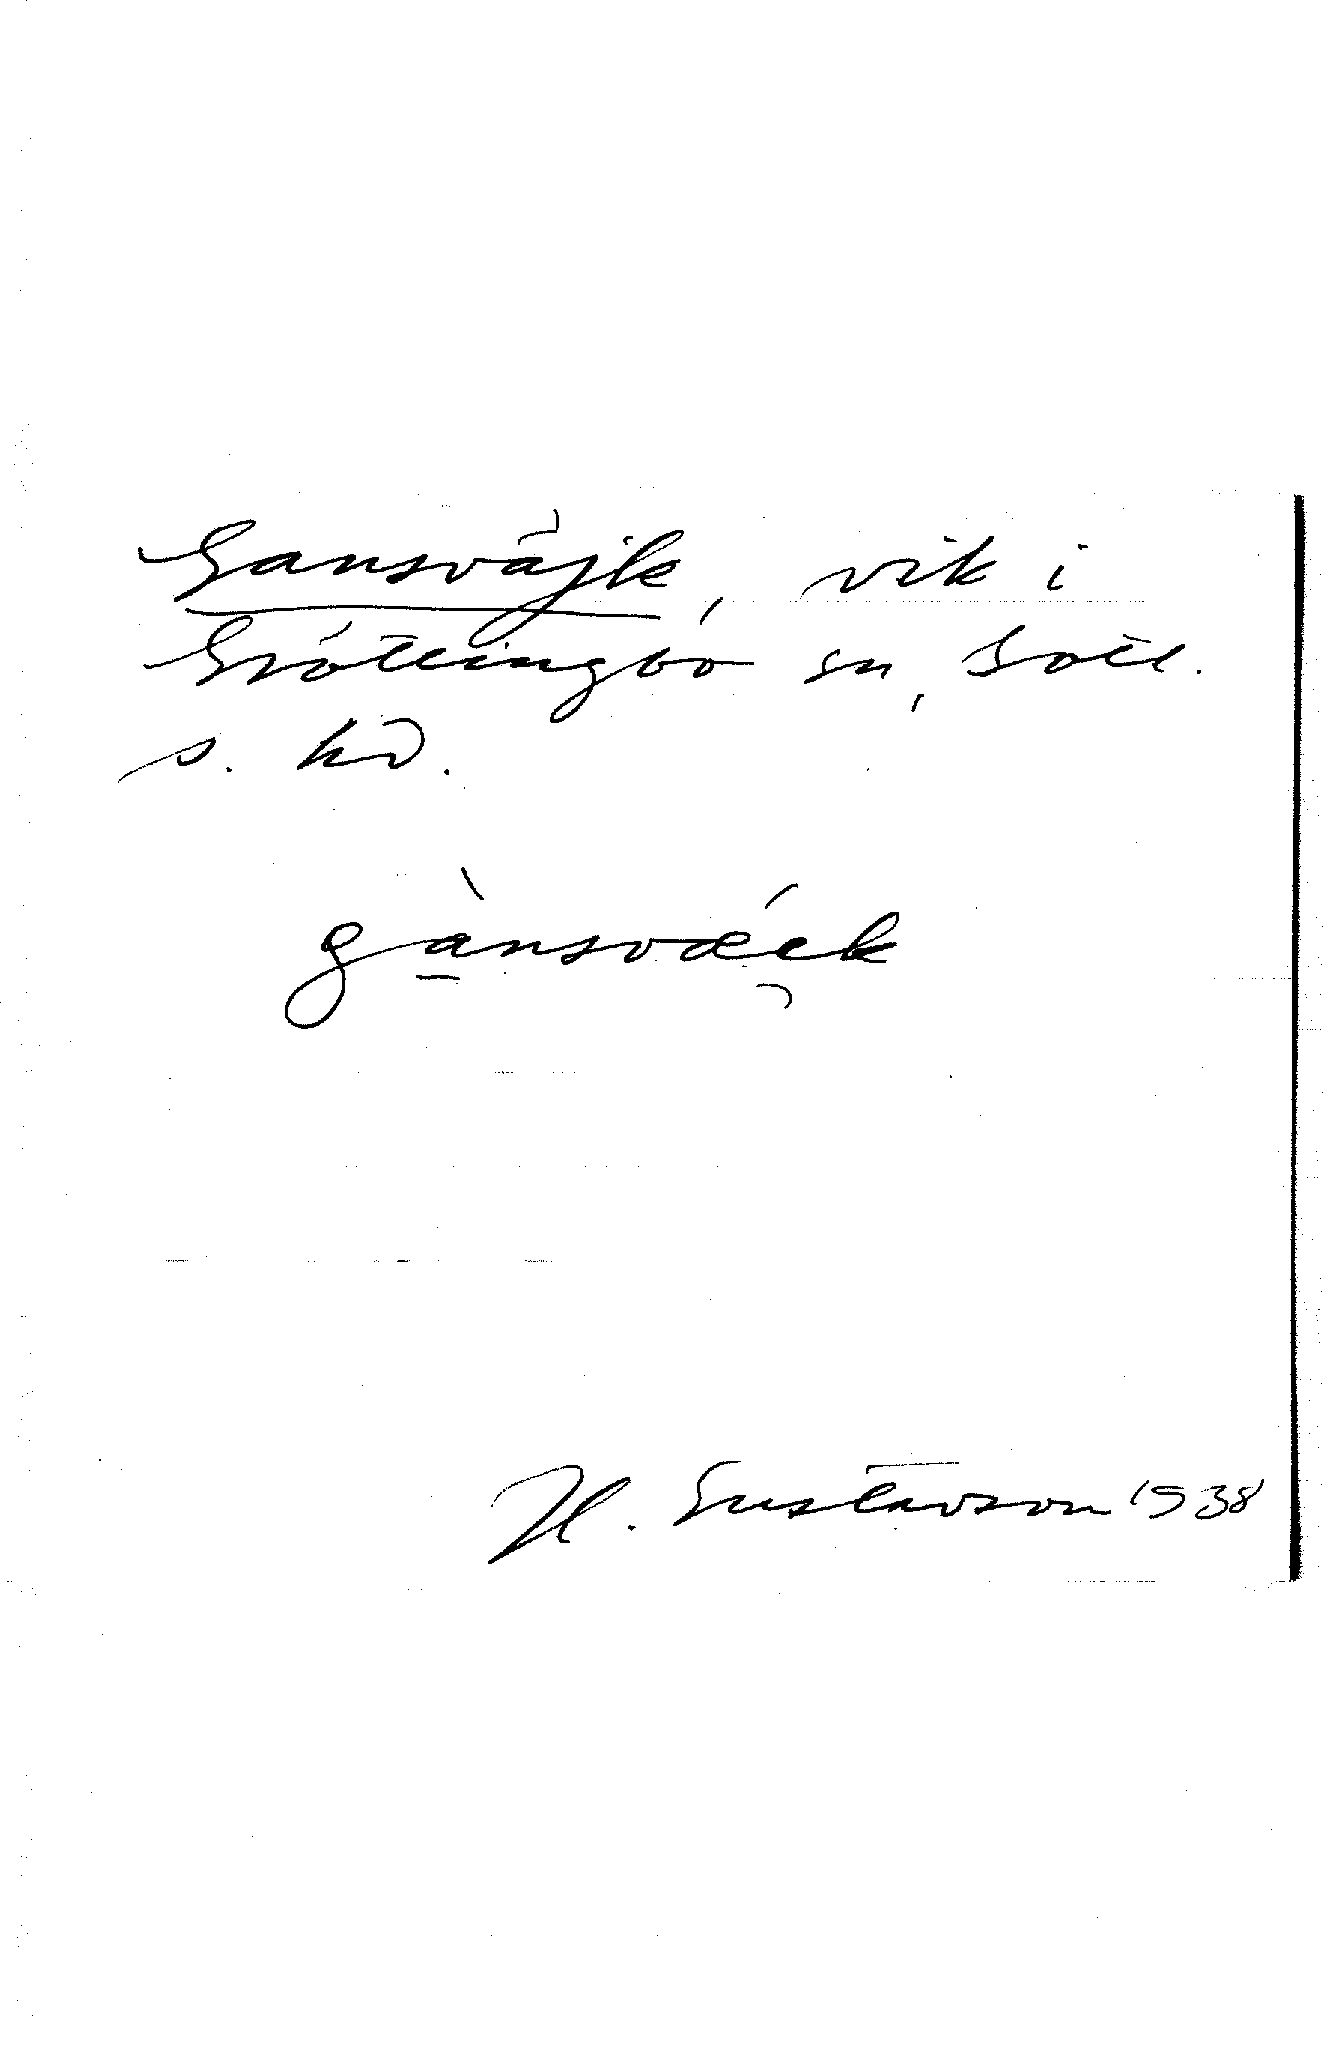 Gansväjk, vik i
Grötlingbo sn, Gotl.
s. hd.
gànsvǽek
H. Gustavson 1938